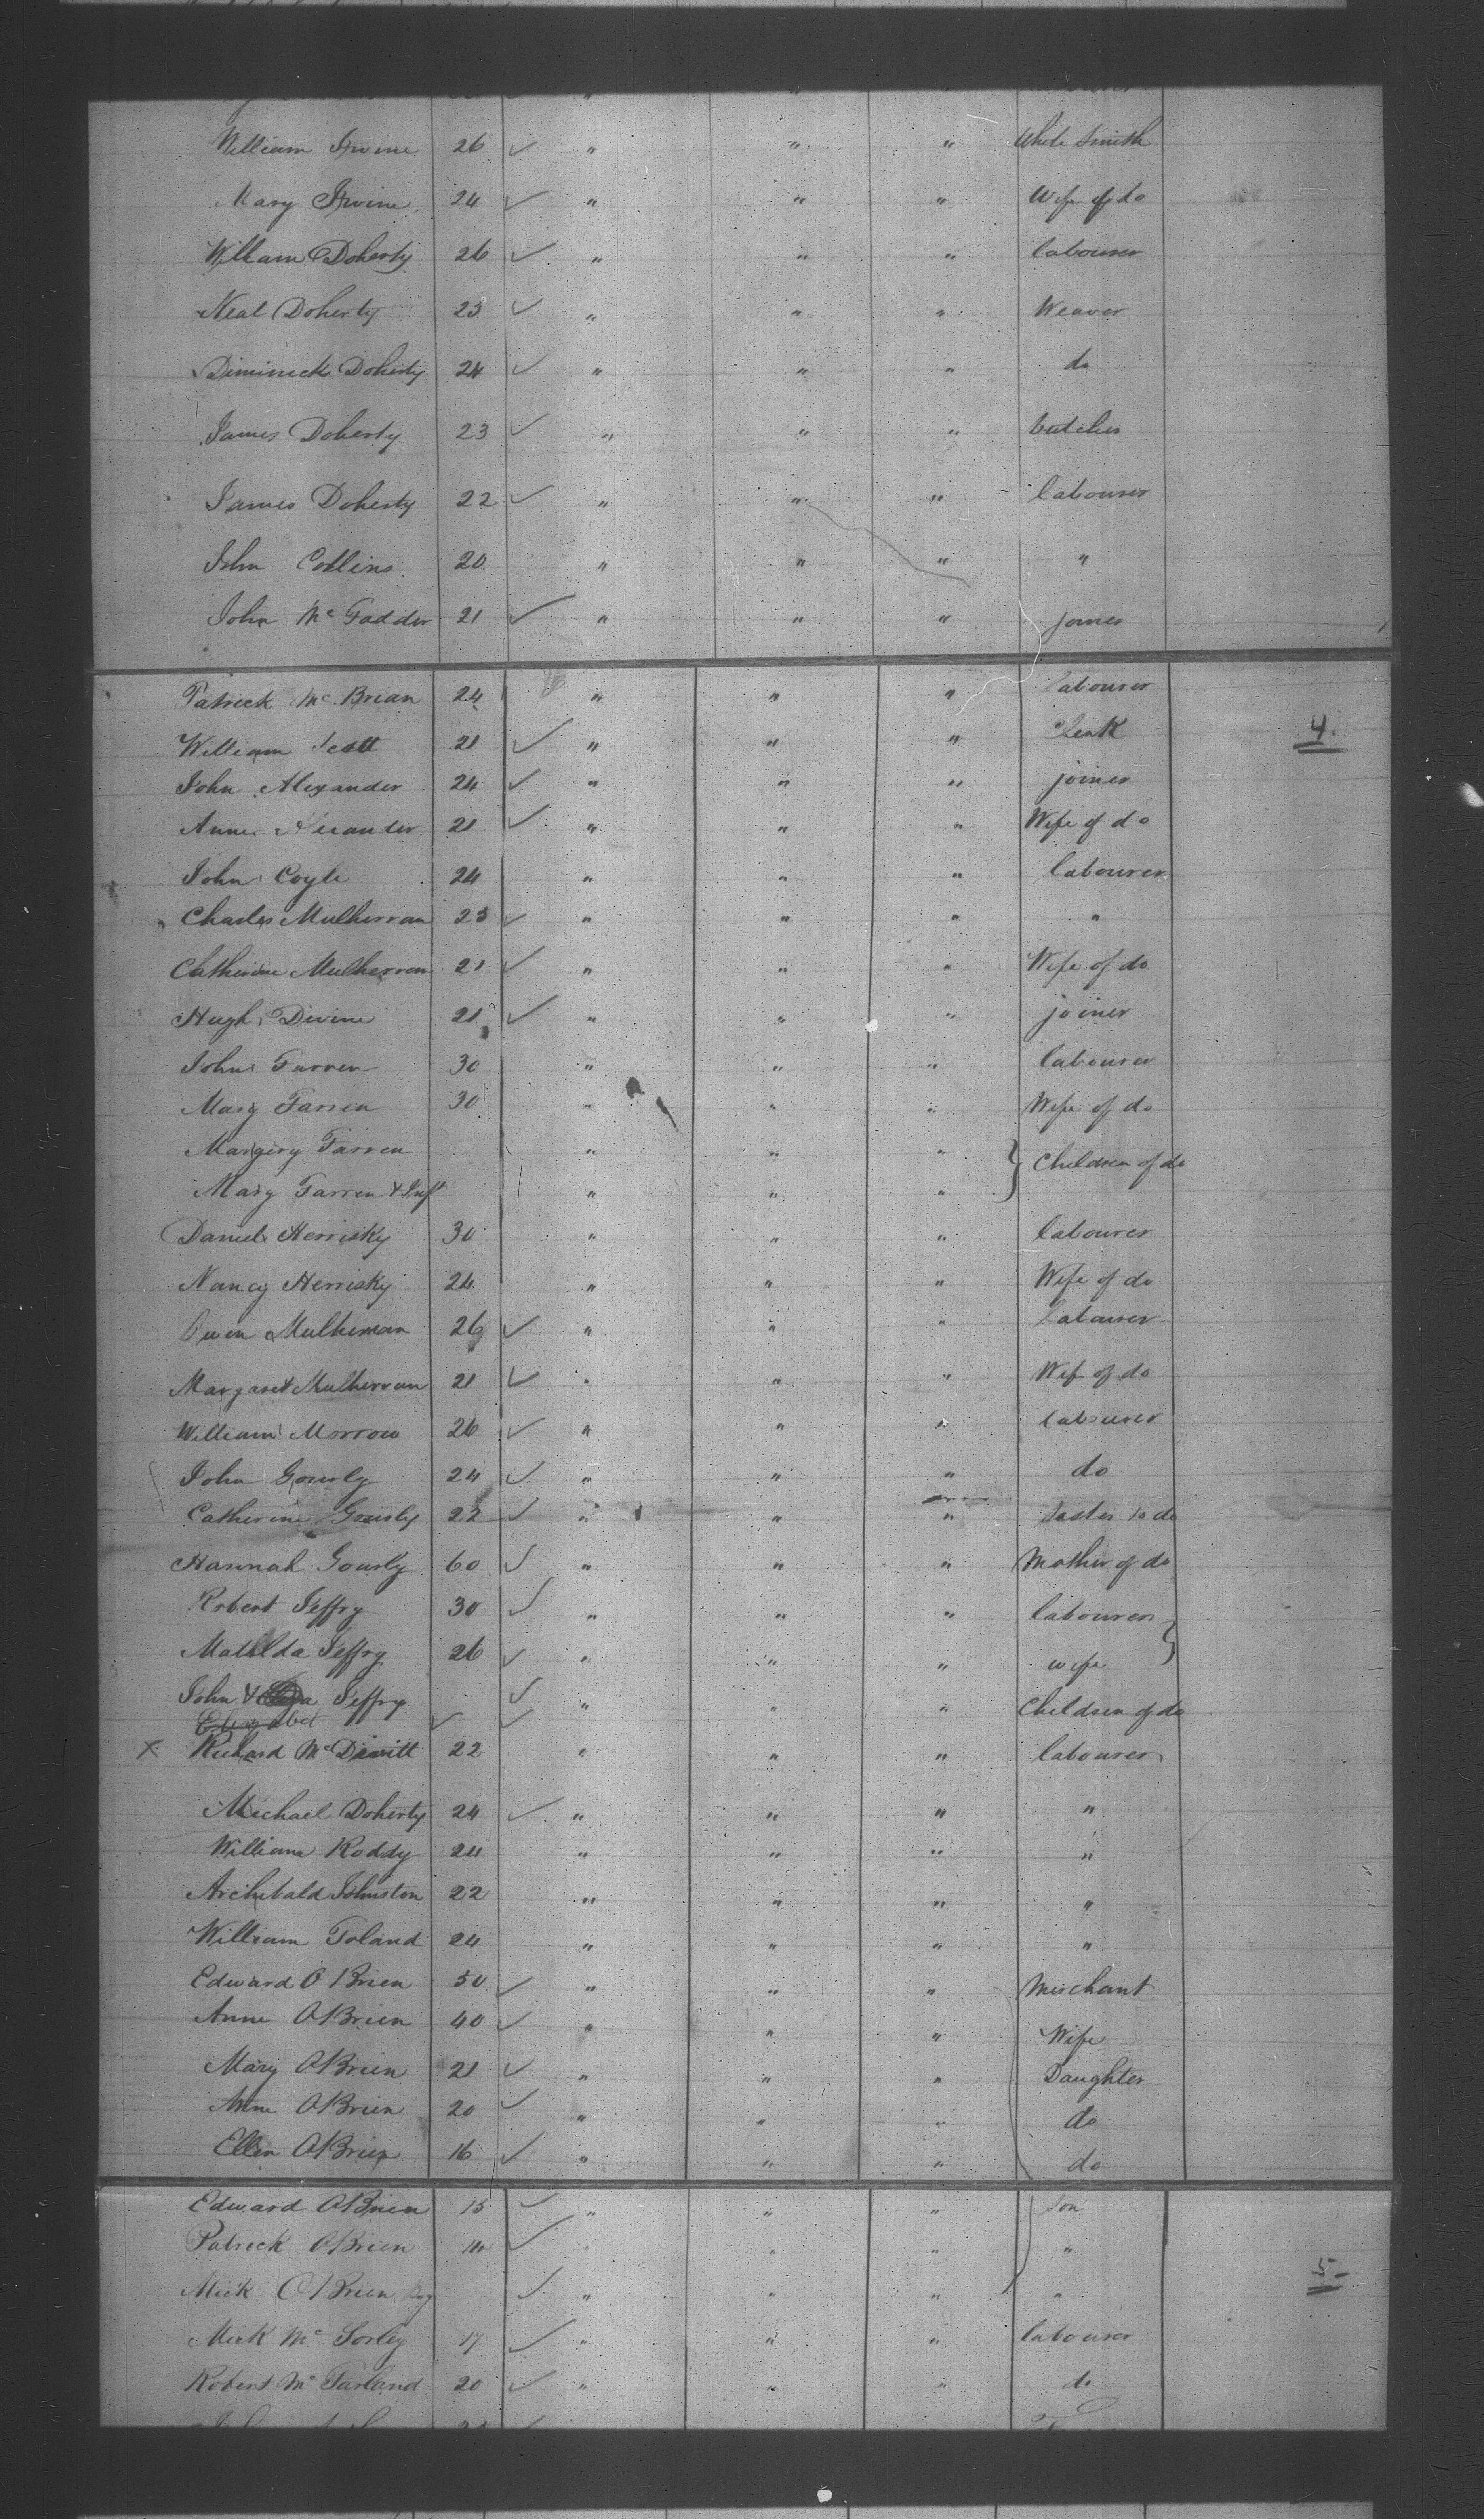 William Irvine 26 " " " White Smith
Mary Irvine 24 " " " Wife of do
William Doherty 26 " " " labourer
Neal Doherty 23 " " " Weaver
Diminick Doherty 24 " " " do
James Doherty 23 " " " butcher
James Doherty 22 " " " labourer
John Collins 20 " " " "
John McFadder 21 " " " joiner
Patrick McBrian 24 " " " labourer
William Scott 21 " " " Clerk
4.
John Alexander 24 " " " joiner
Anne Alexander 21 " " " Wife of do
John Coyle 24 " " " labourer
Charles Mulherran 23 " " " "
Catherine Mulherran 21 " " " Wife of do
Hugh Divine 21 " " " joiner
John Farren 30 " " " labourer
Mary Farren 30 " " " Wife of do
Margery Farren " " " } Children of do
Mary Farren & Inft " " "
Daniel Herrisky 30 " " " labourer
Nancy Herrisky 24 " " " Wife of do
Owen Mulherran 26 " " " labourer
Margaret Mulherran 21 " " " Wif of do
William Morrow 26 " " " labourer
John Gourly 24 " " " do
Catherine Gourly 22 " " " Sister to do
Hannah Gourly 60 " " " Mother of do
Robert Jeffry 30 " " " labourer }
Matilda Jeffry 26 " " " wife
John & Jeffry " " " Children of do
Elizabet
X Richard McDivitt 22 " " " labourer
Michael Doherty 24 " " " "
William Roddy 24 " " " "
Archibald Johnston 22 " " " "
William Toland 24 " " " "
Edward OBrien 50 " " " Merchant
Anne OBrien 40 " " " Wife
Mary OBrien 21 " " " Daughter
Anne OBrien 20 " " " do
Ellen OBrien 16 " " " do
Edward OBrien 15 " " " Son
Patrick OBrien 14 " " " "
Mick OBrien Boy " " " "
5
Mick McSorley 17 " " " labourer
Robert McFarland 20 " " " do